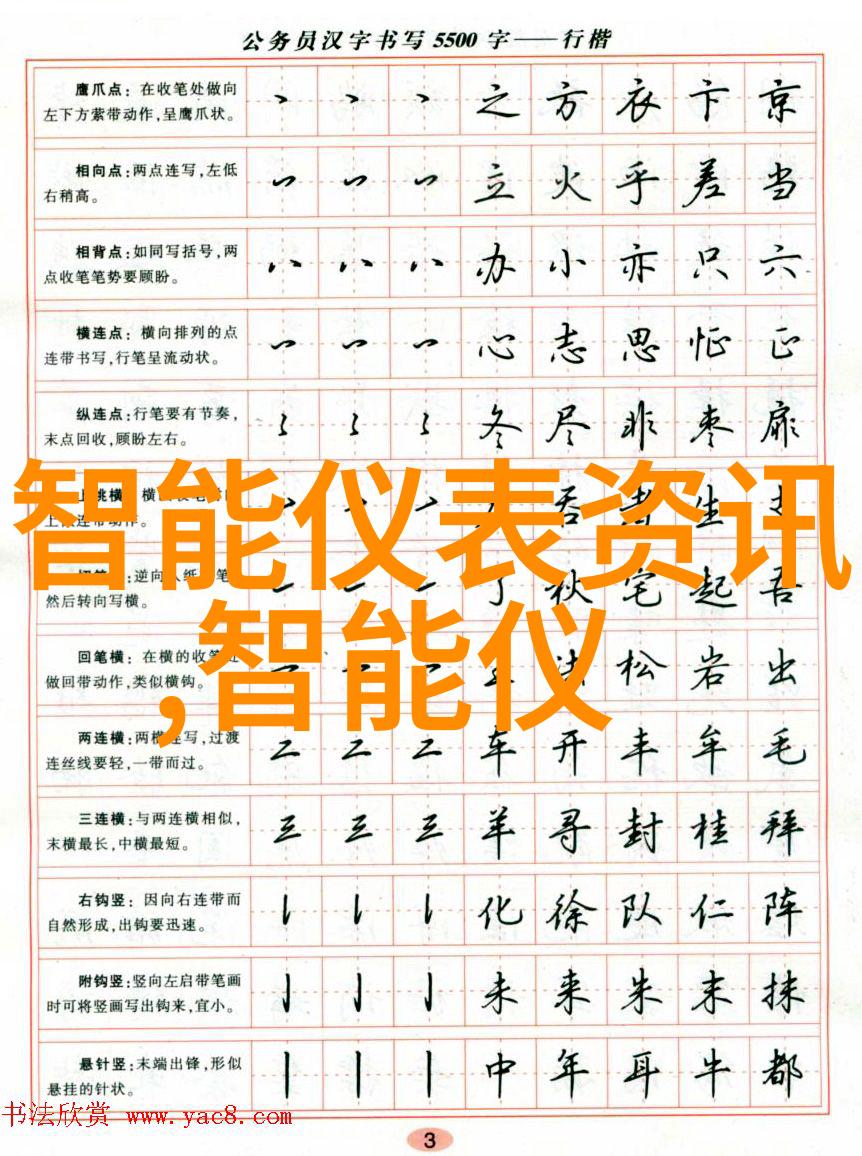 公务员汉字书写 5500 字——行楷
鹰爪点：在收笔处做向
左下方萦带动作，呈鹰爪状。
之 方 衣 卞 京
相向点：两点连写，左低
右稍高。
立 火 乎 差 当
相背点：如同写括号，两
点收笔笔势要顾盼。
办 小 亦 只 六
横连点：横向排列的点
连带书写，行笔呈流动状。
心 志 思 恒 正
纵连点：行笔要有节奏，
末点回收，顾盼左右。
冬 尽 非 枣 扉
智能仪表资讯
,智能仪
然后转向写横。
丁 秋 宅 起 吾
回笔横：在横的收笔处
做回带动作，类似横钩。
松 岩 出
两连横：两横连写，过渡
连丝线要轻，一带而过。
二 二 二 车 开 丰 牟 毛
三连横：与两连横相似，
末横最长，中横最短。
三 三 三 羊 寻 封 桂 拜
右钩竖：因向右连带而
自然形成，出钩要迅速。
化 徐 队 仁 阵
附钩竖：竖向左启带笔画
时可将竖画写出钩来，宜小。
未 来 朱 末 抹
悬针竖：末端出锋，形似
悬挂的针状。
中 年 耳 牛 都
书法欣赏 www.yac8.com
3